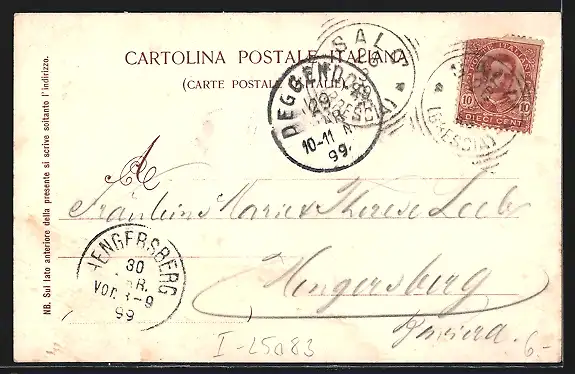 CARTOLINA POSTALE ITALIANA
(CARTE POSTALE D'ITALIE)
SALO
(BRESCIA)
POSTE ITALIANE
10 10
DIECI CENT
(BRESCIA)
DEGGENDORF
29
MAR.
10-11
99.
NB. Sul lato anteriore della presente si scrive soltanto l'indirizzo.
A
Fräuleins Marie & Therese Loeb
HENGERSBERG
30
MAR.
VOR. 8-9
99
Hengersberg
Baviera
I-25083
6-